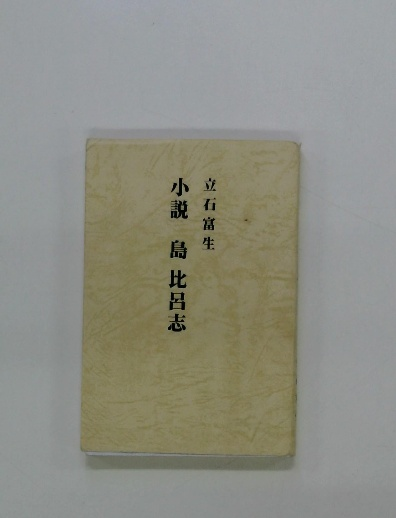 立石富生
小説 島 比呂志